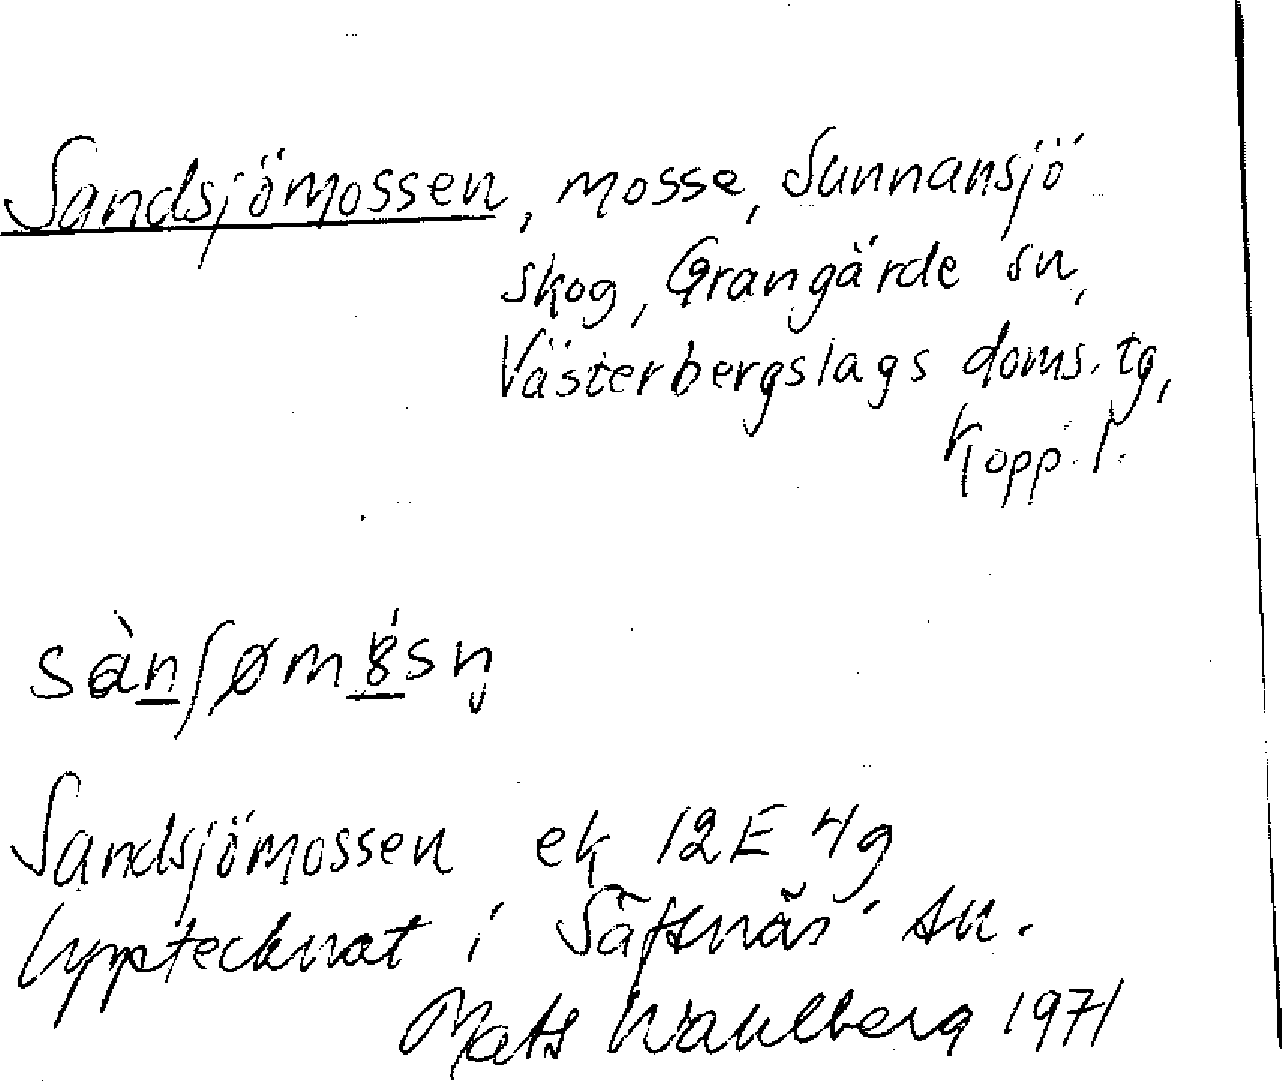 Sandsjömossen, mosse, Sunnansjö
skog, Grangärde sn,
Västerbergslags doms. tg,
Kopp. l.
Sandsjömossen ek 12E 4g
Upptecknat i Säfsnäs sn.
Mats Wahlberg 1971